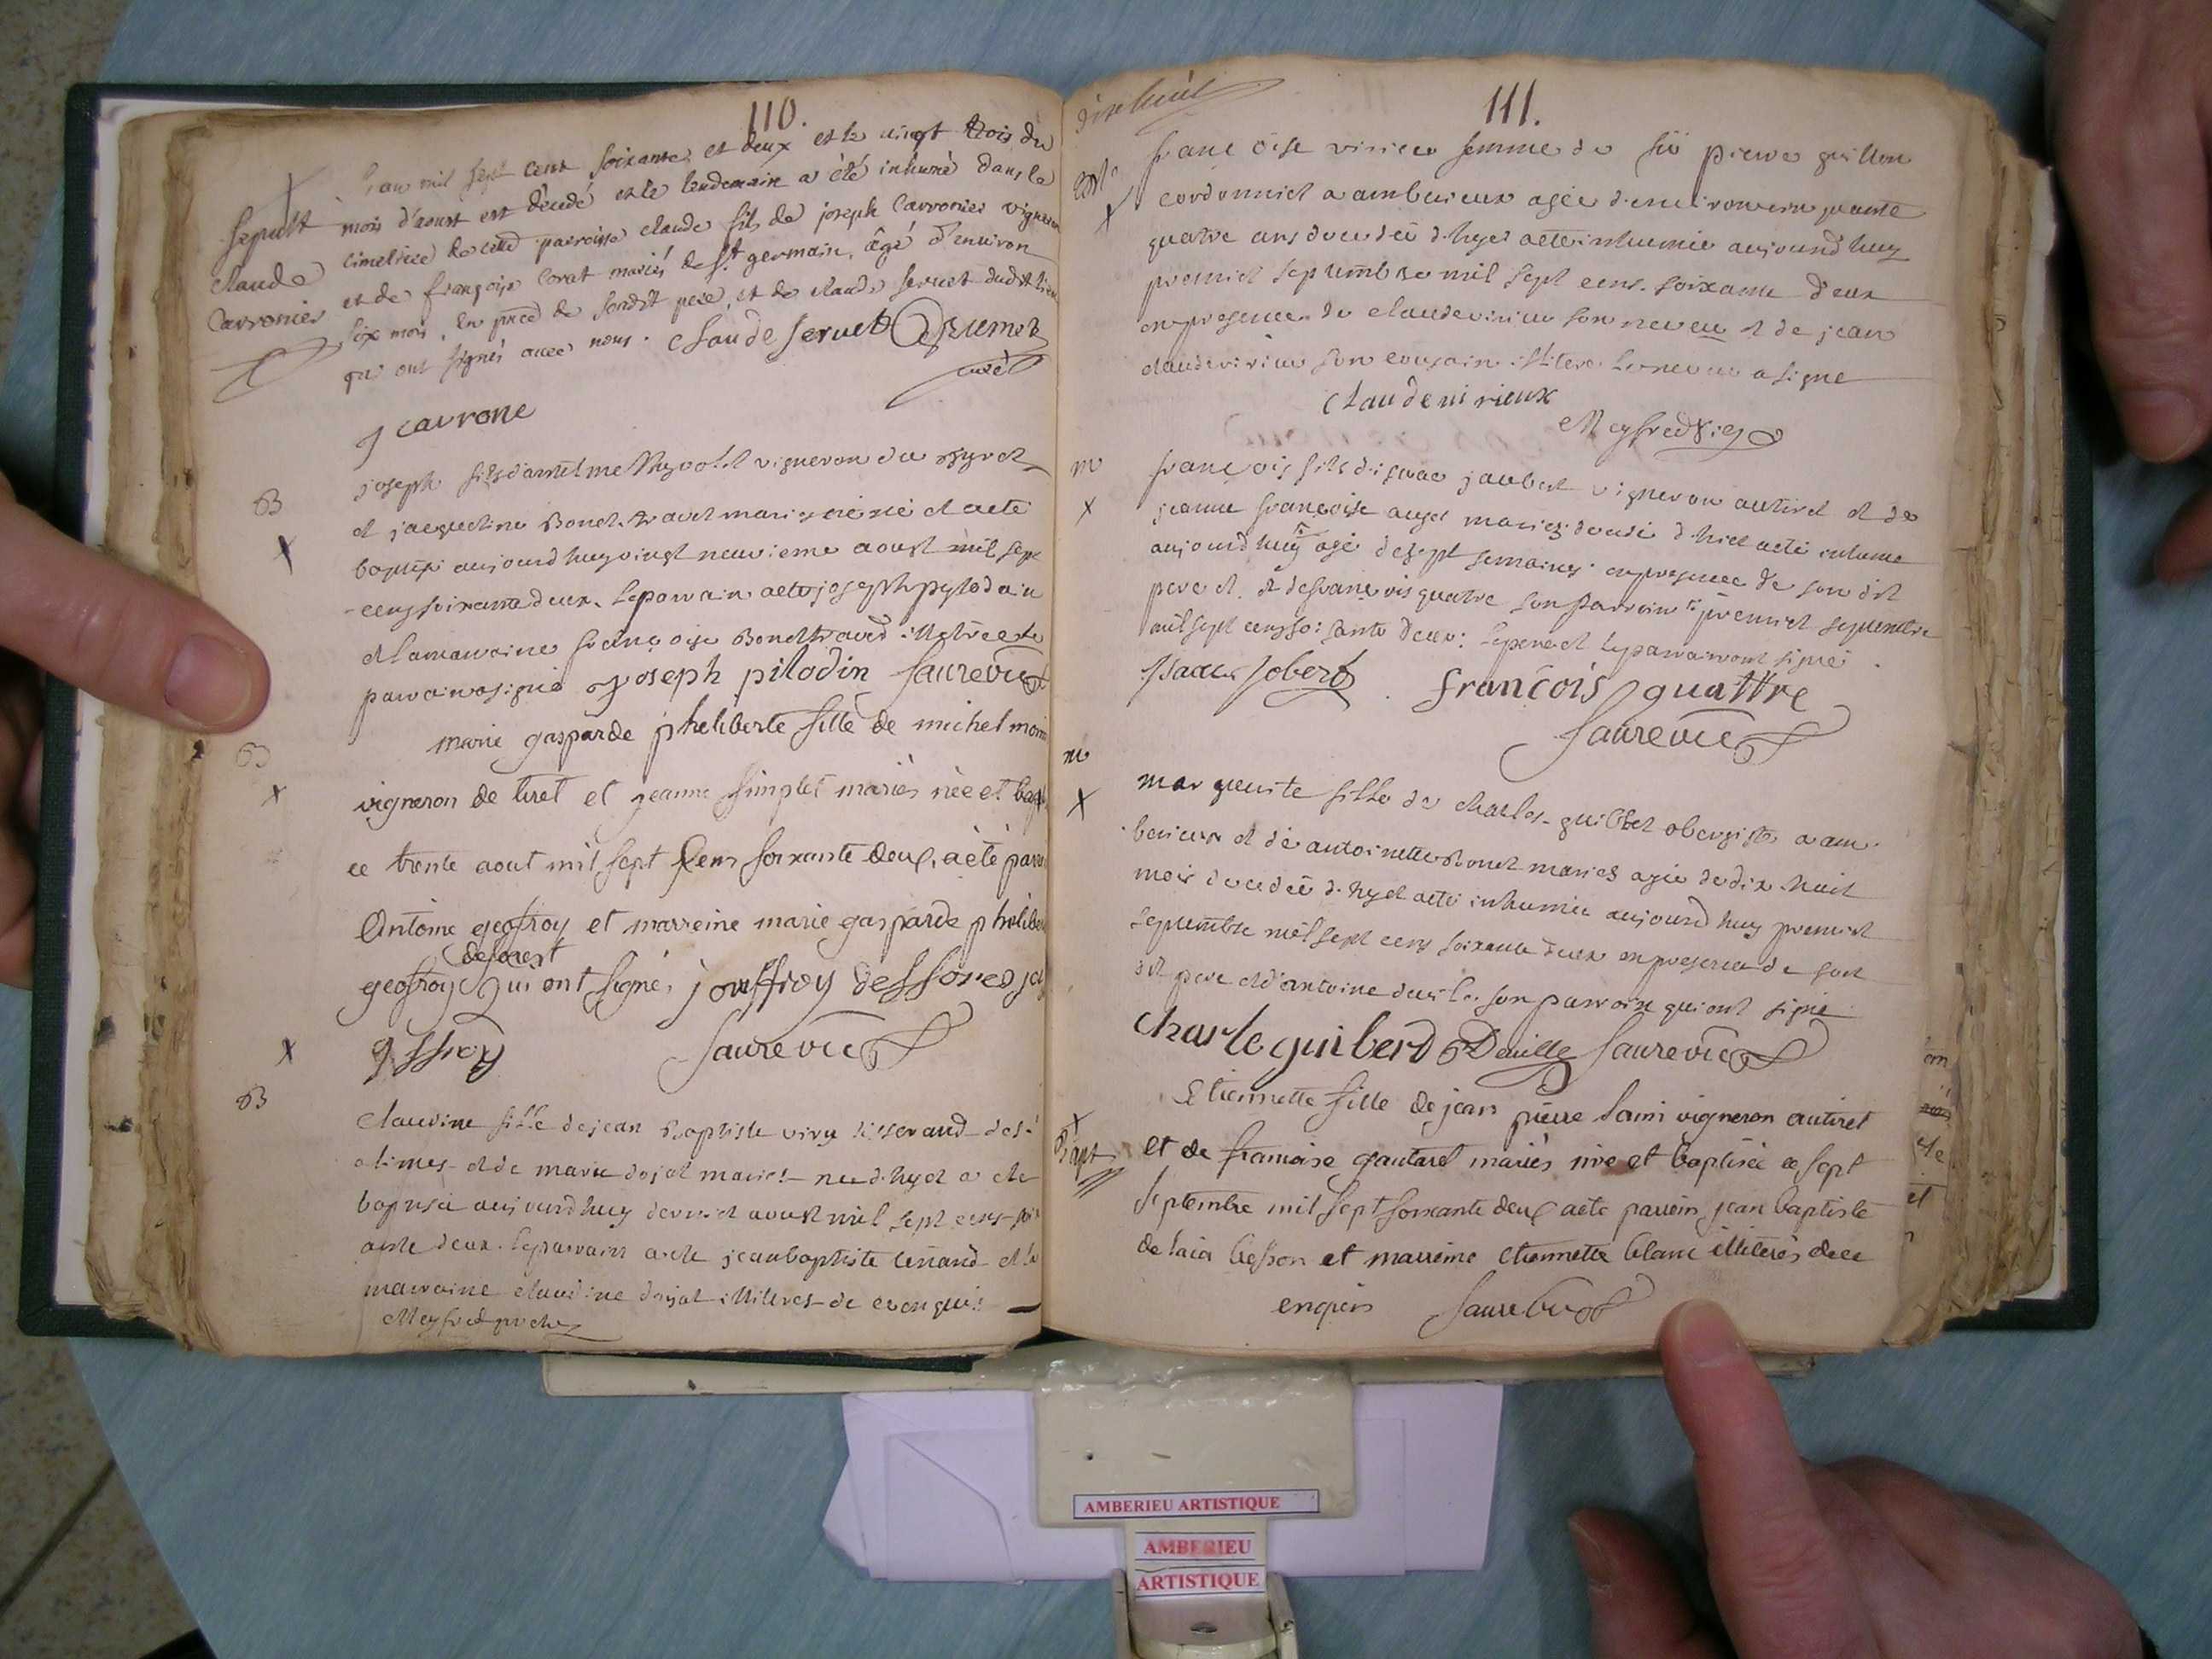 110.
L'an mil sept cent soixante et deux et le vingt trois du
sepult mois d'aoust est décédé et le lendemain a été inhumé dans le
claude cimetiere de cette paroisse claude fils de joseph Carronier vigneron
Carronier et de françoise Corat mariés de St germain, âgé d'environ
six mois, en pnce de sondit pere, et de claude servet dudit lieu
qui ont signés avec nous. claude servet Brumet
curé
J carrone
B joseph fils d'antelme vigneron du
X et jacqueline Bonet mariez né et a ete
baptisé aujourd huy vingt neuvieme aoust mil sept
cens soixante deux. le parrain a ete joseph pylodain
et la marraine françoise illitérée le
parrain a signé joseph pilodin Saurevic
B marie gasparde pheliberte fille de michel
X vigneron de tiret et jeanne simplet mariés née et bapt
ce trente aout mil sept cens soixante deux, a été parr
Antoine geoffroy et marreine marie gasparde phelibe
deforest
geoffroy qui ont signé, jouffroy dessores
X Saurevic
B Claudine fille de jean Baptiste viry tisserand des
alimes et de marie dojat mariés née d. hyer a ete
baptisée aujourd huy dernier aoust mil sept cens soix
ante deux. le parrain a ete jean baptiste et la
marraine claudine dojat illiteres de ce enquis
Meyfred
dixhuit
111.
françoise virieu femme de feü pierre guillon
X cordonnier a amberieux agée d'environ cinquante
quatre ans decedeé d. hyer a ete inhumée aujourd huy
premier septembre mil sept cens soixante deux
en presence de claude virieu son neveu et de jean
claude virieu son cousin illitere. le neveu a signé
claude virieux
Meyfred
m françois fils d'isaac jaubert vigneron au tiret et de
X jeanne françoise auger mariez decedé d hier a eté inhumé
aujourd huy agé de sept semaines en presence de son dit
pere et de françois quatre son parrain premier septembre
mil sept cens soixante deux: le pere et le parrain ont signé
Isaac Jobert françois quattre
Saurevic
m marguerite fille de charles guilbert obergiste a am
X berieux et de antoinette Bonet mariés agée de dix huit
mois decedeé d. hyer a eté inhumée aujourd huy premier
septembre mil sept cens soixante deux en presence de son
dit pere et d'antoine deville son parrain qui ont signé
Charle guiberd Deville Saurevic
X Etiennette fille de jean pierre Lami vigneron au tiret
Bapt et de francoise gautaret mariés née et baptisée ce sept
septembre mil sept soixante deux a ete parrein jean baptiste
besson et marreine etiennette blanc illiterés de ce
enquis Saurevic
AMBERIEU ARTISTIQUE
AMBERIEU
ARTISTIQUE